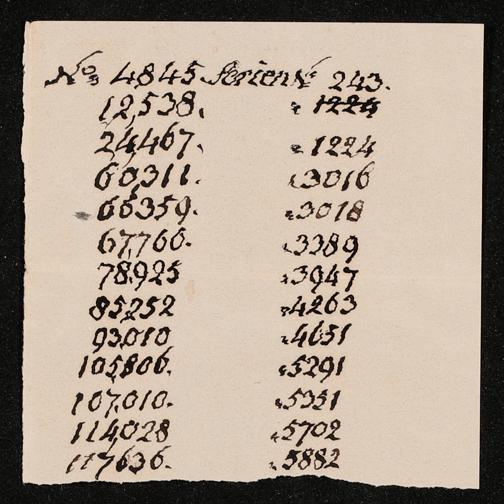 No 4845. Serien No 243.
12,538. " 1224
24,467. " 1224
60,311. " 3016
60,359. " 3018
67,766. " 3389
78,925 " 3947
85,252 " 4263
93,010 " 4651
105,806. " 5291
107,010. " 5351
114,028 " 5702
117,636. " 5882